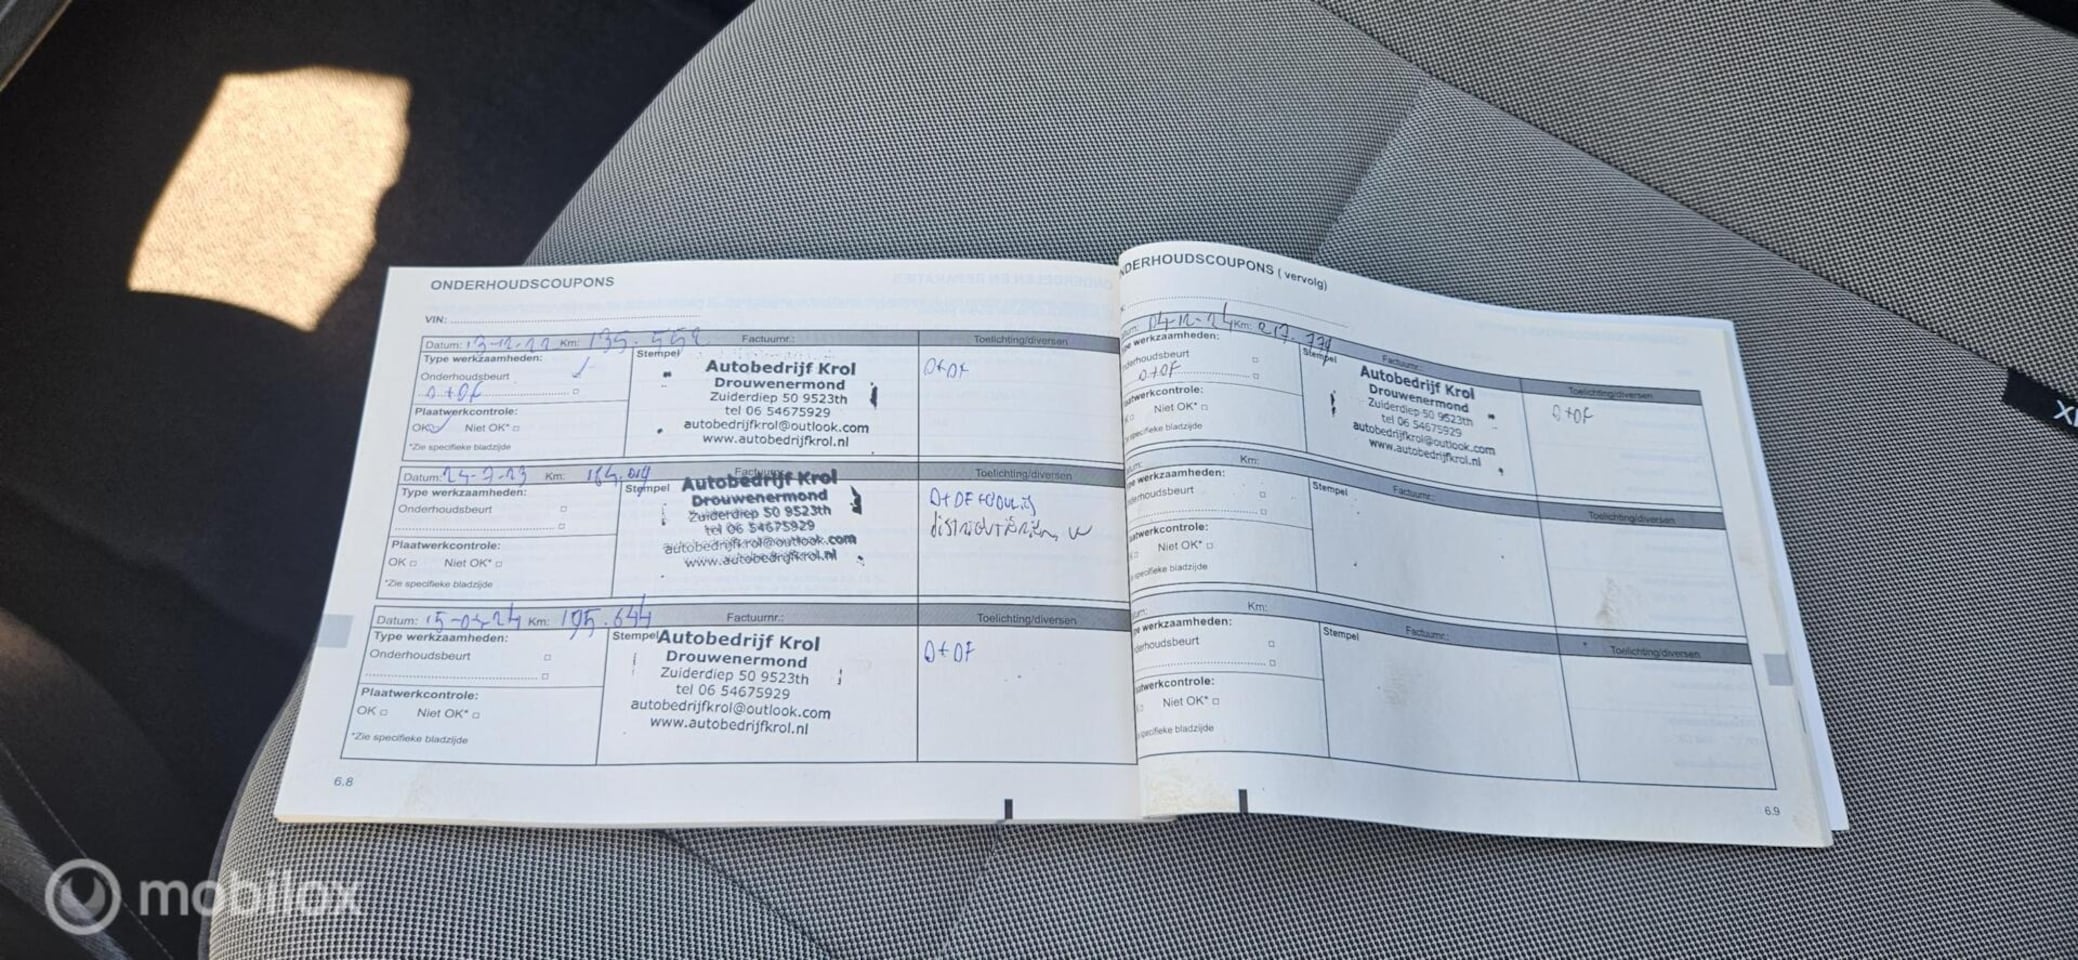 ONDERHOUDSCOUPONS
VIN:
Datum: 13-12-22 Km: 135.552 Factuurnr.: Toelichting/diversen
Type werkzaamheden:
Onderhoudsbeurt
O+OF
Plaatwerkcontrole:
OK Niet OK*
*Zie specifieke bladzijde
Stempel
Autobedrijf Krol
Drouwenermond
Zuiderdiep 50 9523th
tel 06 54675929
autobedrijfkrol@outlook.com
www.autobedrijfkrol.nl
O+OF
Datum: 24-7-23 Km: 164.019 Factuurnr.: Toelichting/diversen
Type werkzaamheden:
Onderhoudsbeurt
Plaatwerkcontrole:
OK Niet OK*
*Zie specifieke bladzijde
Stempel
Autobedrijf Krol
Drouwenermond
Zuiderdiep 50 9523th
tel 06 54675929
autobedrijfkrol@outlook.com
www.autobedrijfkrol.nl
O+OF
Datum: 15-04-24 Km: 195.644 Factuurnr.: Toelichting/diversen
Type werkzaamheden:
Onderhoudsbeurt
Plaatwerkcontrole:
OK Niet OK*
*Zie specifieke bladzijde
Stempel
Autobedrijf Krol
Drouwenermond
Zuiderdiep 50 9523th
tel 06 54675929
autobedrijfkrol@outlook.com
www.autobedrijfkrol.nl
O+OF
6.8
NDERHOUDSCOUPONS ( vervolg)
04-12-24 Km: 217.779 Factuurnr.: Toelichting/diversen
e werkzaamheden:
derhoudsbeurt
O+OF
atwerkcontrole:
Niet OK*
specifieke bladzijde
Stempel
Autobedrijf Krol
Drouwenermond
Zuiderdiep 50 9523th
tel 06 54675929
autobedrijfkrol@outlook.com
www.autobedrijfkrol.nl
O+OF
Km: Factuurnr.: Toelichting/diversen
e werkzaamheden:
derhoudsbeurt
atwerkcontrole:
Niet OK*
specifieke bladzijde
Stempel
Km: Factuurnr.: Toelichting/diversen
e werkzaamheden:
derhoudsbeurt
atwerkcontrole:
Niet OK*
specifieke bladzijde
Stempel
6.9
mobilox